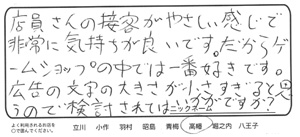 店員さんの接客がやさしい感じで
非常に気持ちが良いです。だからゲ
ームショップの中では一番好きです。
広告の文字の大きさが小さすぎると思
うので検討されてはいかがですか?
よく利用されるお店を
○で選んでください。
立川 小作 羽村 昭島 青梅 高幡 堀之内 八王子